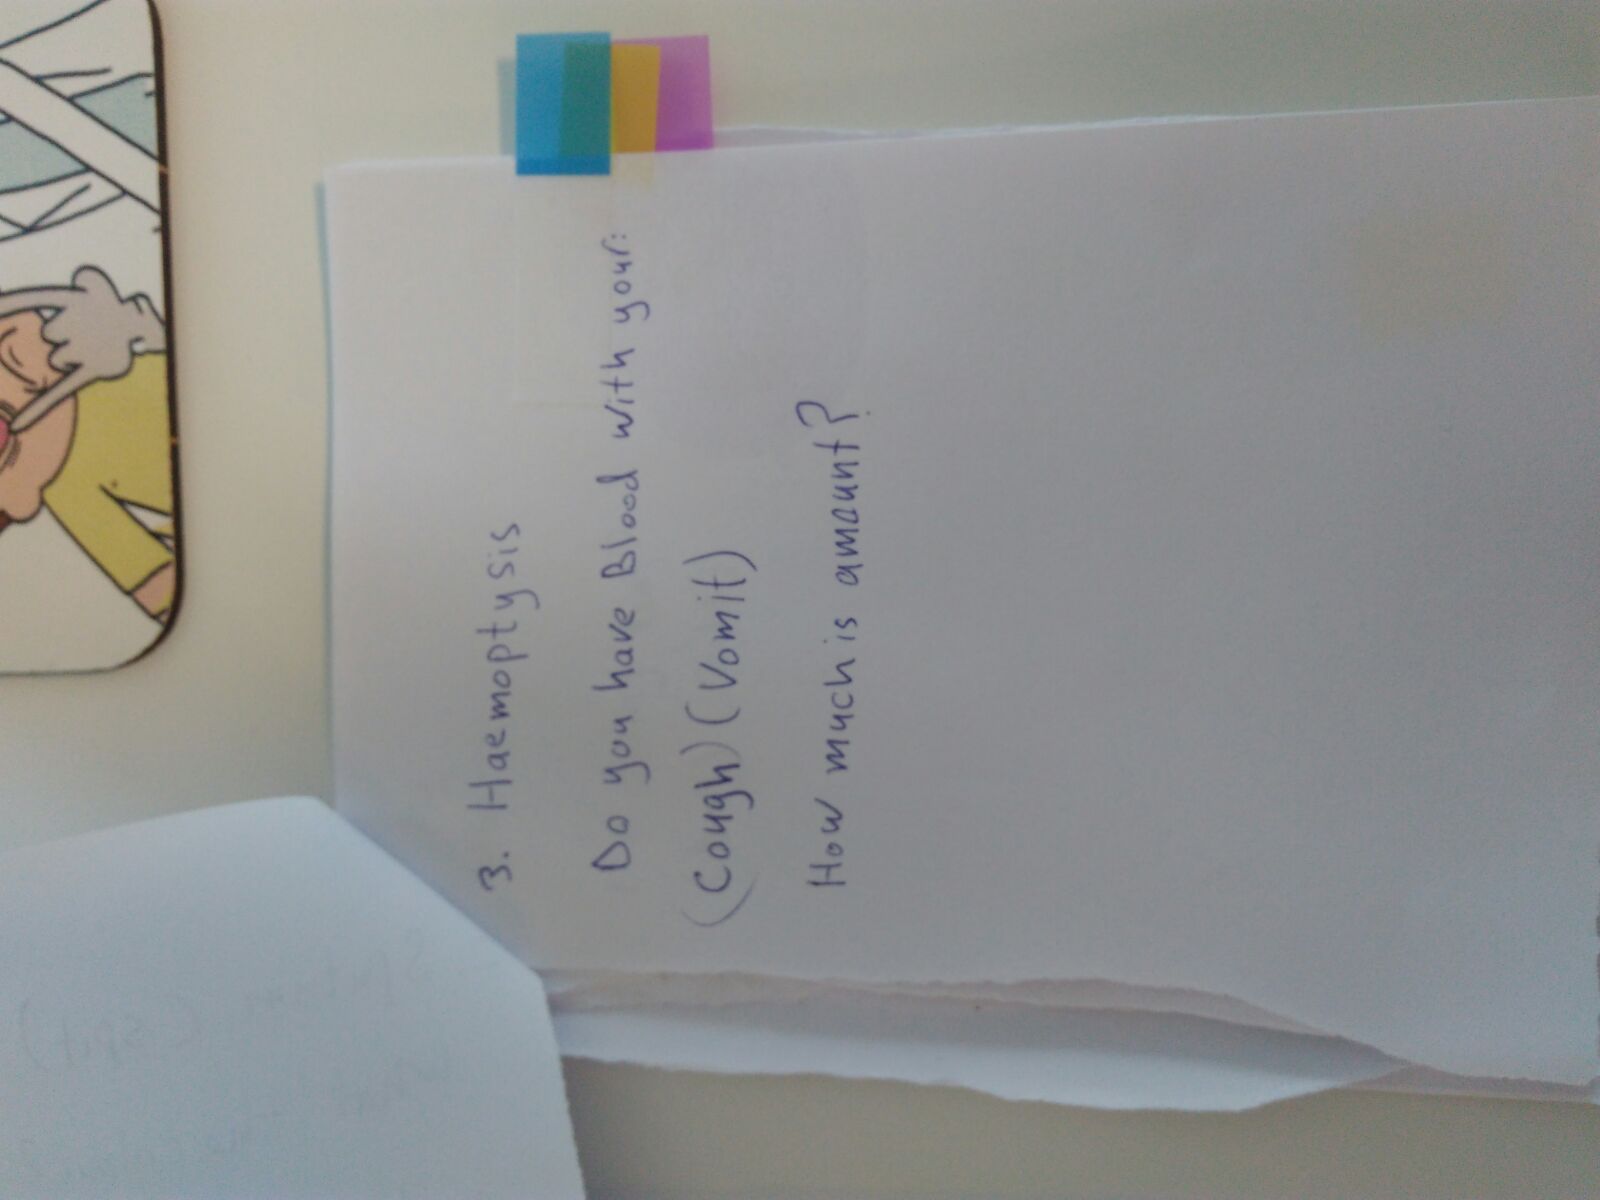 3. Haemoptysis
Do you have Blood with your:
(Cough) (Vomit)
How much is amount?